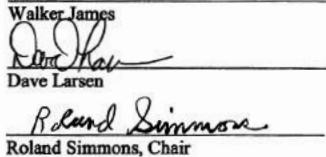 Walker James
Dave Larsen
Roland Simmons
Roland Simmons, Chair